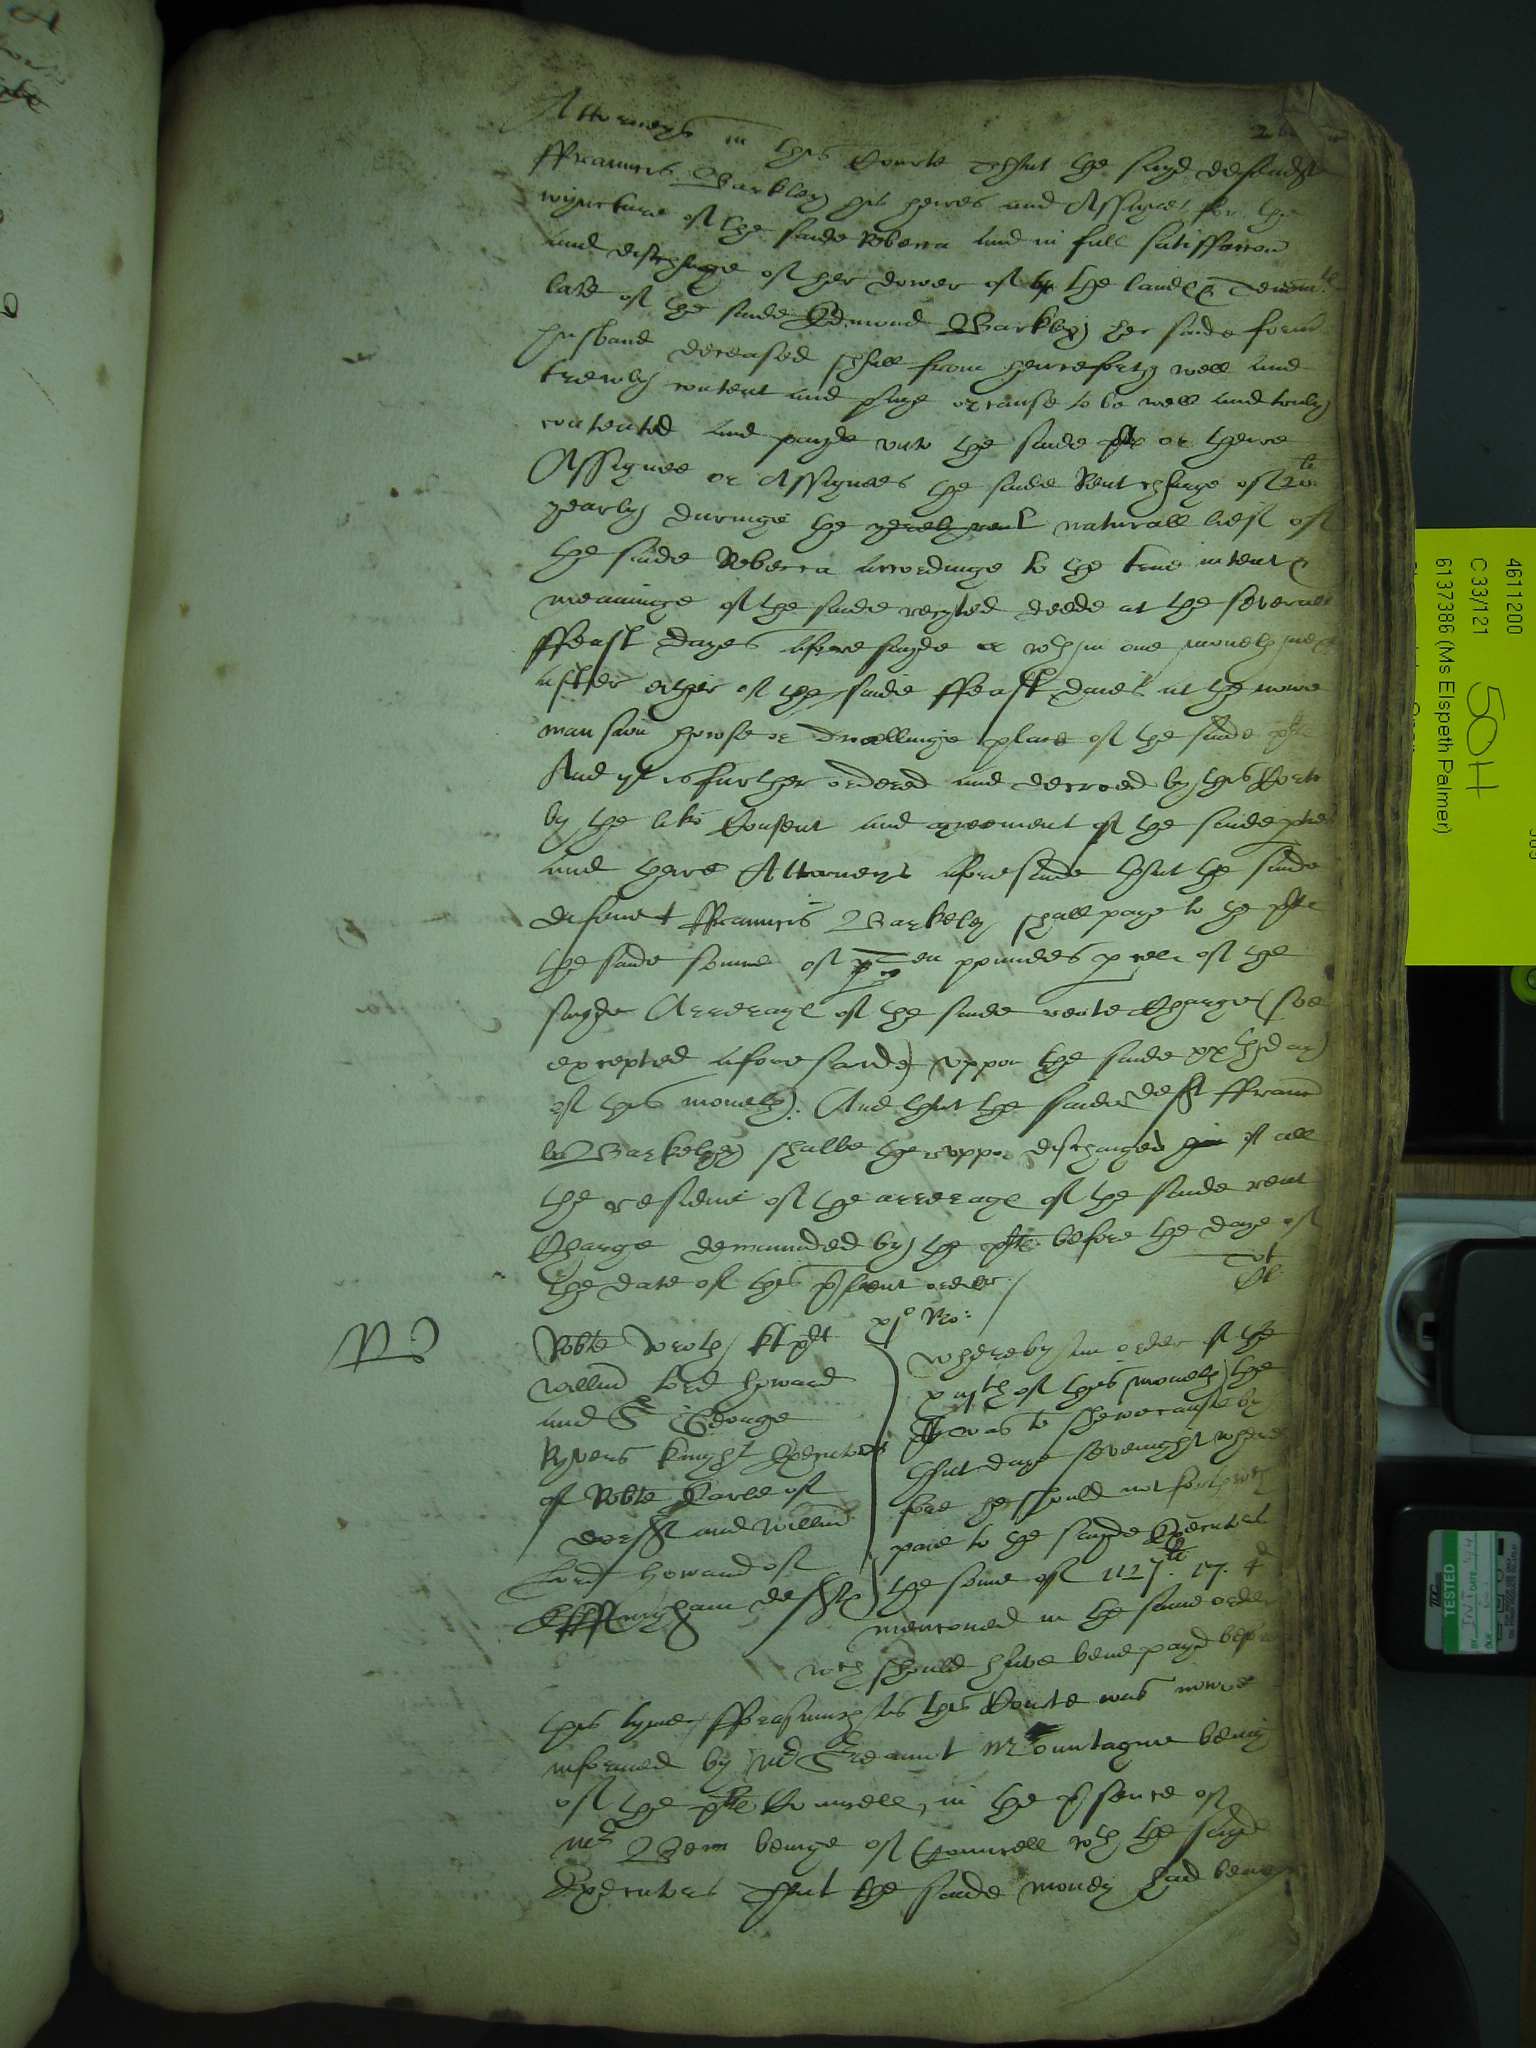 Attorneys in this Courte That the sayd defendt
ffrauncis Barkley his heires and Assignes for the
joyncture of the saide Rebecca and in full satisfaccon
and discharge of her dower of the landes & Tenemtes
late of the saide Edmond Barkley her saide former
husband deceased shall from henceforth well and
trewly content and paye or cause to be well and truly
contented and payde unto the saide plt or theire
Assignee or Assignees the saide Rent charge of 20li
yearly duringe the naturall lief of
the saide Rebecca accordinge to the true intent &
meaninge of the saide recyted deede at the severall
ffeast dayes aforesayde or wthin one moneth next
after either of the saide ffeast daies at the nowe
mansion howse or dwellinge place of the saide plte
And yt is further ordered and decreed by this Corte
by the like Consent and agreement of the saide pties
and there Attorneys aforesaide that the saide
defendt ffrauncis Barkeley shall paye to the plte
the saide somme of poundes pcell of the
sayde Arrerages of the saide rente Charge (soe
excepted aforesaide) uppon the saide xxth day
of this moneth. And that the saide deft ffraunc
Barkeley shalbe theruppon discharged of all
the residue of the arrerages of the saide rent
Charge demaunded by the plte before the daye of
the date of this psent order
xjo No:
Robte Wroth kt plt
Willm Lord Howard
and Sr George
Ryvers knight Executors
of Robte Earle of
Dorst and Willm
Lord Howard of
Effingham defts
Whereby an order of the
of this moneth the
plt was to shewe cause by
that daye sevenight where
fore he should not forthwth
paie to the sayde Executors
the some of 1127li. 17. 4d
mencioned in the same order
wch should have bene payd before
this tyme, fforasmuch as this Courte was nowe
informed by Mr Sreaunt Mountague being
of the plts Councell, in the psence of
Mr beinge of Councell wth the sayde
Executors That the saide money had bene
4611200
C 33/121
50H
6137386 (Ms Elspeth Palmer)
TESTED
BY INT DATE 4/4
DUE